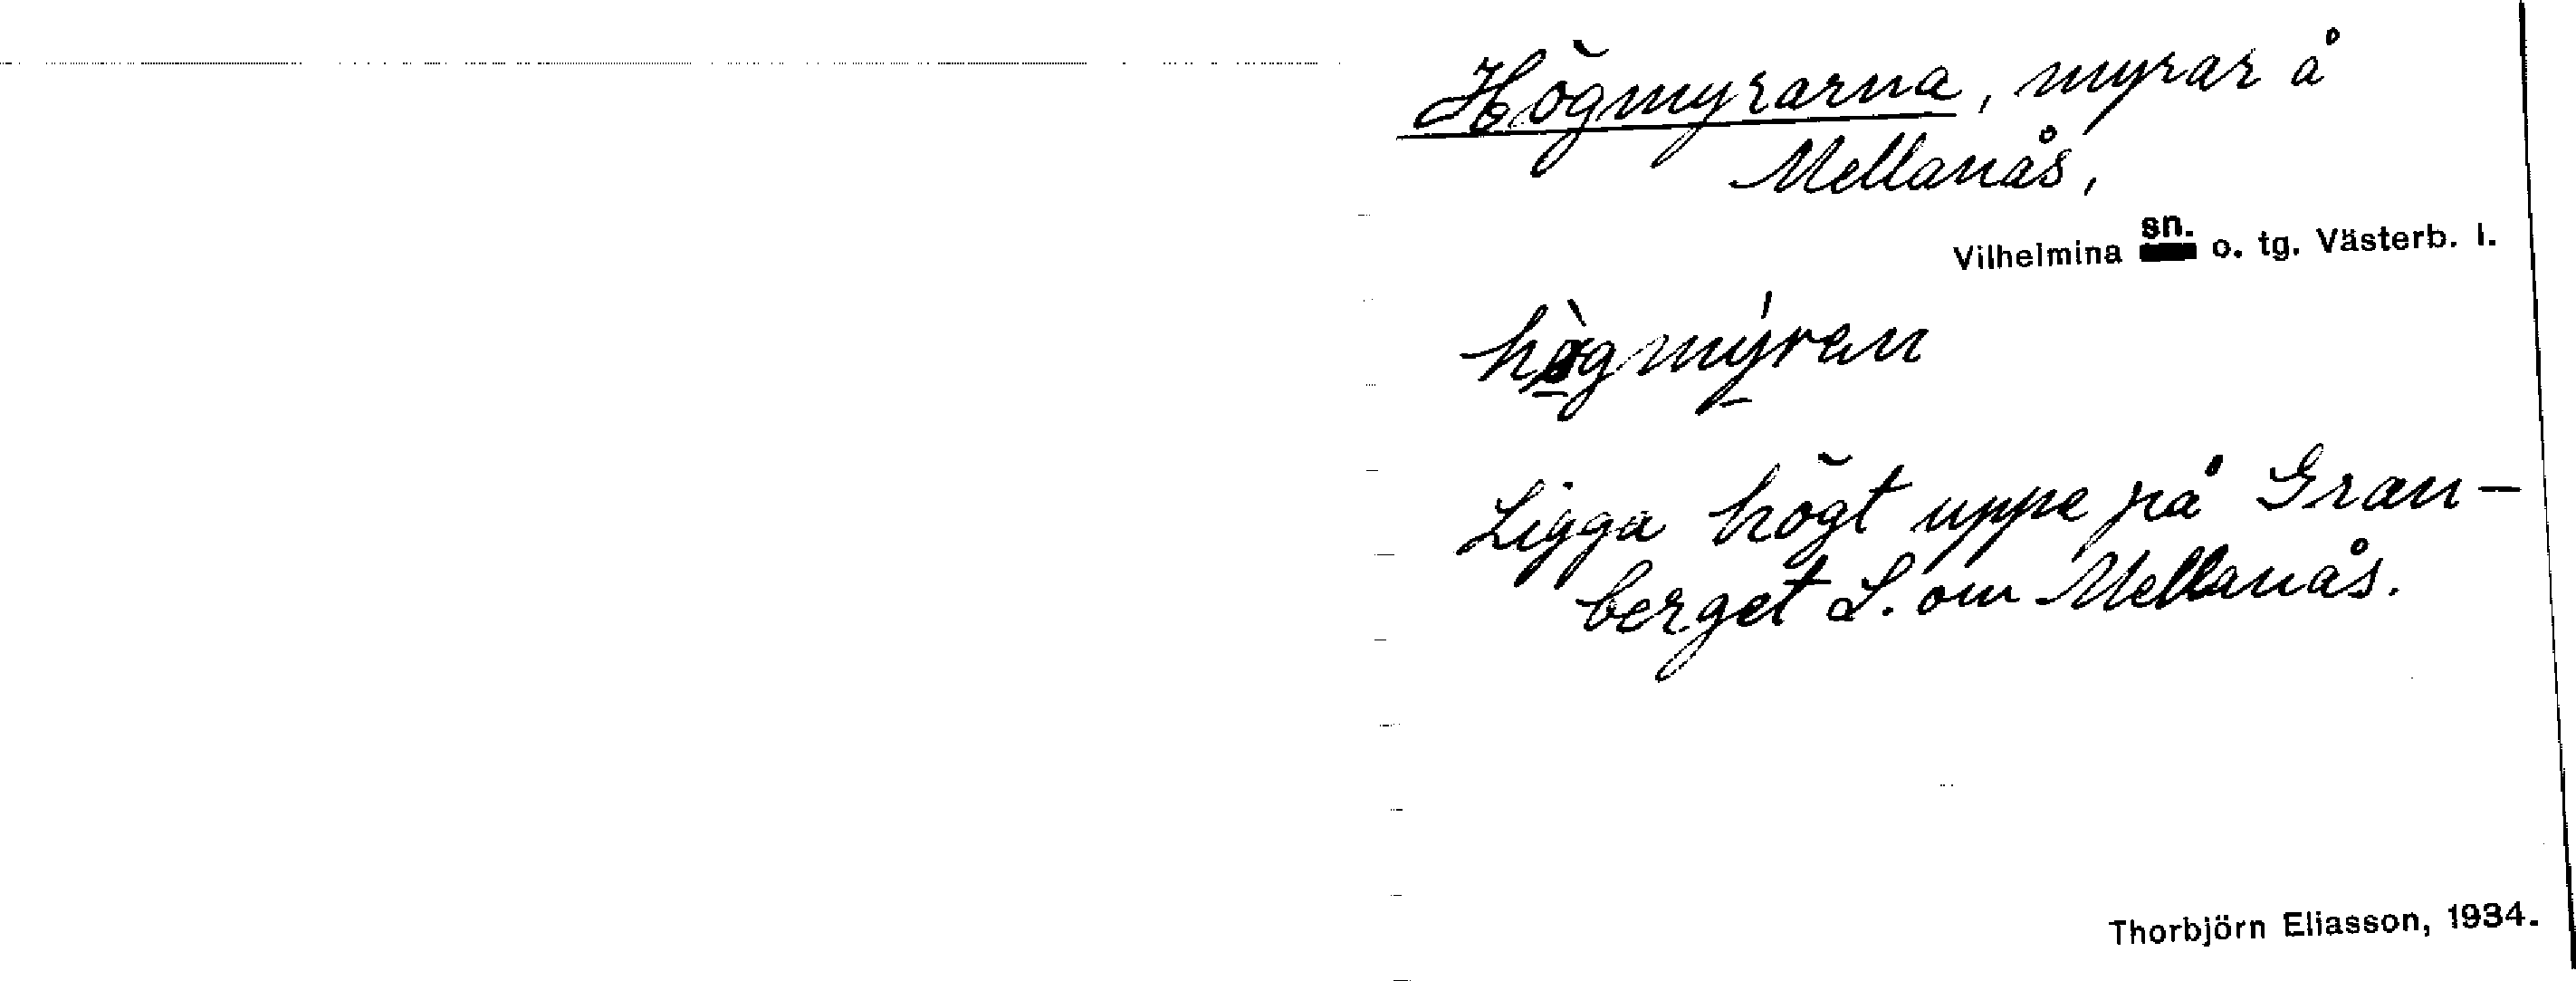 Högmyrarna, myrar å
Mellanås,
Vilhelmina sn. o. tg. Västerb. l.
högmyran
Ligga högt uppe på Gran-
berget S. om Mellanås.
Thorbjörn Eliasson, 1934.